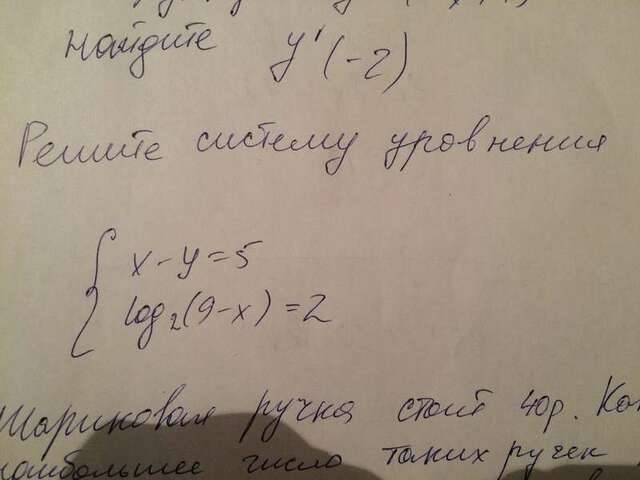 Найдите y'(-2)
Решите систему уровнения
{ x - y = 5
log₂(9-x) = 2
Шариковая ручка стоит 40р.
наибольшее число таких ручек